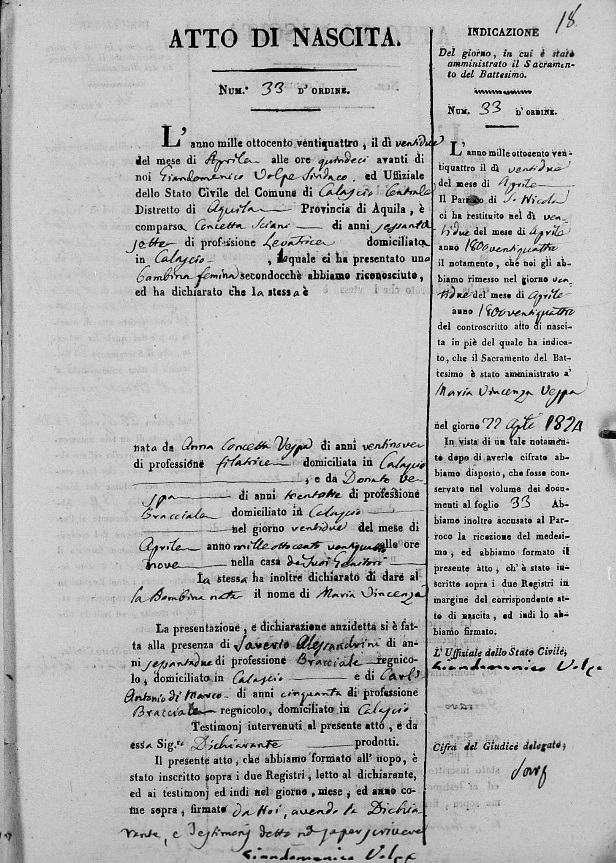 18
ATTO DI NASCITA.
Num.º 33 D' ORDINE.
L' anno mille ottocento ventiquattro, il dì ventidue
del mese di Aprile alle ore quindeci avanti di
noi Giandomenico Volpe Sindaco, ed Uffiziale
dello Stato Civile del Comune di Calascio Centrale
Distretto di Aquila Provincia di Aquila, è
comparsa Concetta Sciani di anni sessanta
sette di professione Levatrice domiciliata
in Calascio, la quale ci ha presentato una
bambina femina secondocchè abbiamo riconosciuto,
ed ha dichiarato che la stessa è
nata da Anna Concetta Vespa di anni ventinove
di professione filatrice domiciliata in Calascio
, e da Donato Ve
spa di anni trentotto di professione
Bracciale domiciliato in Calascio
nel giorno ventidue del mese di
Aprile anno mille ottocento ventiquattro alle ore
nove nella casa de suoi Genitori
La stessa ha inoltre dichiarato di dare al
la Bambina nata il nome di Maria Vincenza
La presentazione, e dichiarazione anzidetta si è fat-
ta alla presenza di Saverio Alessandrini di an-
ni sessantadue di professione Bracciale regnico-
lo, domiciliato in Calascio e di Carl'
Antonio di Marco di anni cinquanta di professione
Bracciale regnicolo, domiciliato in Calascio
Testimonj intervenuti al presente atto, e da
essa Sig.ra Dichiarante prodotti.
Il presente atto, che abbiamo formato all' uopo, è
stato inscritto sopra i due Registri, letto al dichiarante,
ed ai testimonj ed indi nel giorno, mese, ed anno co-
me sopra, firmato da Noi, avendo la Dichia
rante, e Testimonj detto non saper scrivere
Giandomenico Volpe
INDICAZIONE
Del giorno, in cui è stato
amministrato il Sacramen-
to del Battesimo.
Num. 33 D' ORDINE.
L' anno mille ottocento ven-
tiquattro il dì ventidue
del mese di Aprile
Il Parroco di S. Nicola
ci ha restituito nel dì ven-
tidue del mese di Aprile
anno 1800ventiquattro
il notamento, che noi gli ab-
biamo rimesso nel giorno ven-
tidue del mese di Aprile
anno 1800ventiquattro
del controscritto atto di nasci-
ta in piè del quale ha indica-
to, che il Sacramento del Bat-
tesimo è stato amministrato a'
Maria Vincenza Vespa
nel giorno 22 Aple 1824
In vista di un tale notamen-
to dopo di averlo cifrato ab-
biamo disposto, che fosse con-
servato nel volume dei docu-
menti al foglio 33 Ab-
biamo inoltre accusato al Par-
roco la ricezione del medesi-
mo, ed abbiamo formato il
presente atto, ch' è stato in-
scritto sopra i due Registri in
margine del corrispondente at-
to di nascita, ed indi lo ab-
biamo firmato.
L' Uffiziale dello Stato Civile,
Giandomenico Volpe
Cifra del Giudice delegato,